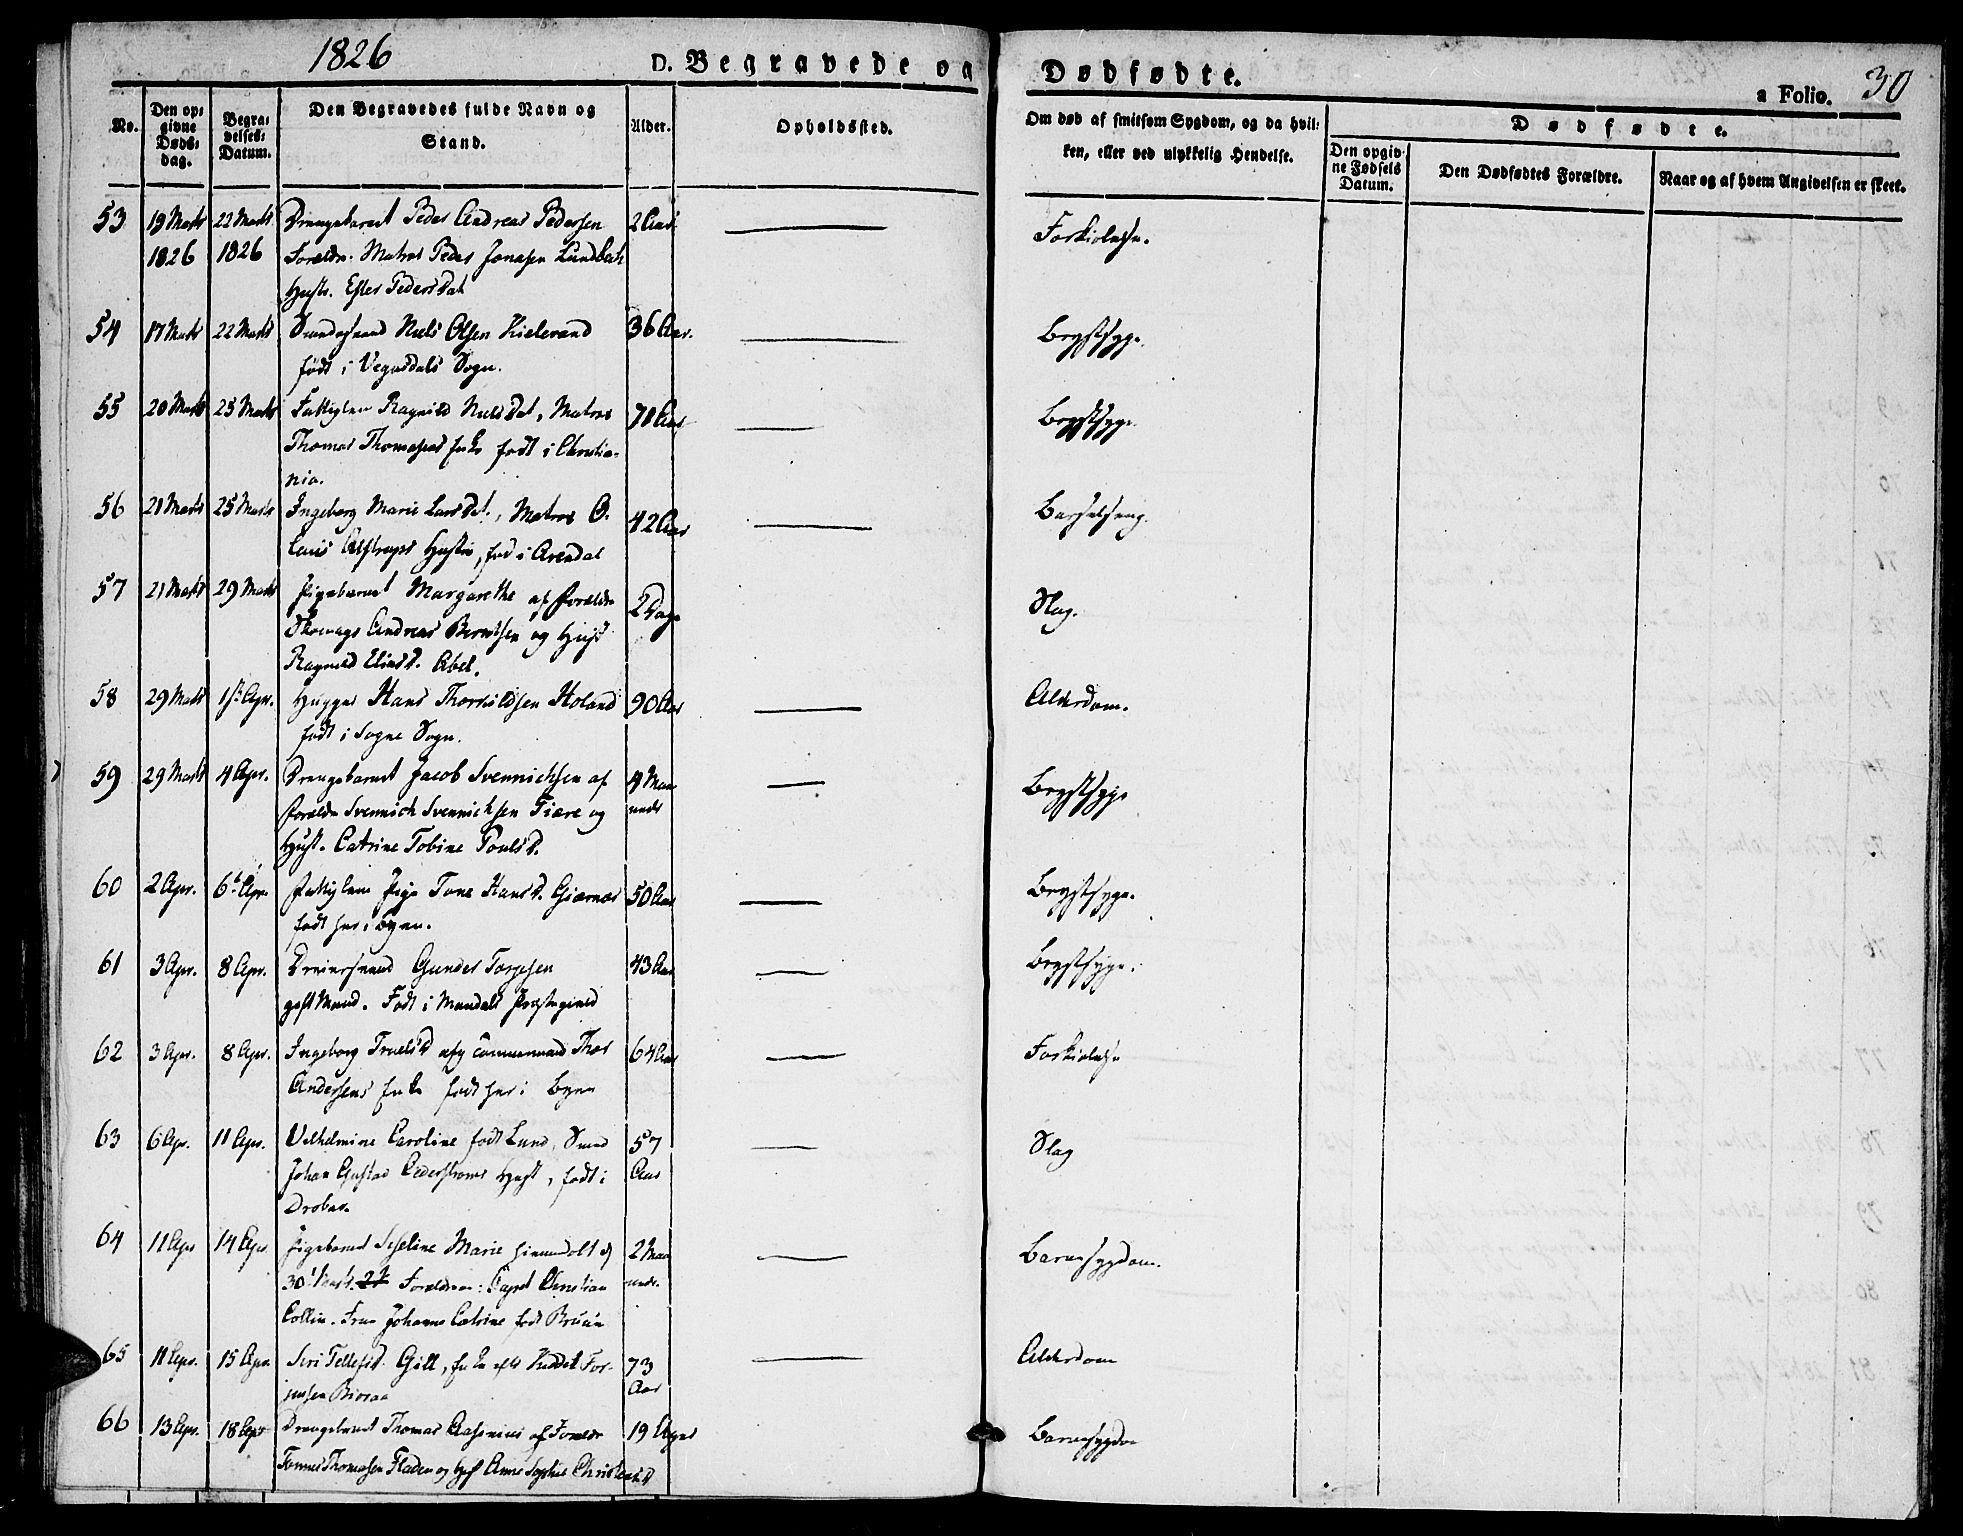 1826
D. Begravede og Dødfødte.
a Folio. 30
No.
Den opgivne Dødsdag.
Begravelses Datum.
Den Begravedes fulde Navn og Stand.
Alder.
Opholdssted.
Om død af smitsom Sygdom, og da hvilken, eller ved ulykkelig Hendelse.
Dødfødte.
Den opgivne Fødsels Datum.
Den Dødfødtes Forældre.
Naar og af hvem Angivelsen er skeet.
53 19 Marts 1826 22 Marts 1826 Drengebarnet Peder Andreas Pedersen 2 Aar Forkiølelse.
Forældre. Matros Peder Jonasen Lundbeck
Hustr. Ester Pedersdat
54 17 Marts 22 Marts Niels Olsen Kielevand 36 Aar. Brystsyge
født i Vegusdals Sogn.
55 20 Marts 25 Marts Fattiglem Ragnild Nielsdat, Matros 70 Aar Brystsyge
Thomas Thomasens Enke født i Christia-
nia.
56 21 Marts 25 Marts Ingeborg Marie Larsdat., Matros O. 42 Aar Barselseng.
Alstrups Hustru, fød i Arendal
57 21 Marts 29 Marts Pigebarnet Margarethe af Forældre 2 Dage Slag.
Andreas Berntsen og Hust
Ragnild Eliasd. Abel.
58 29 Marts 1ste Apr. Hans Thorkildsen Holand 90 Aar Alderdom.
født i Søgne Sogn.
59 29 Marts 4 Apr. Drengebarnet Jacob Svennichsen af 4 Maaneder Brystsyge
Forældre Svennich Svennichsen Tiære og
Hust. Catrine Tobine Poulsd.
60 2 Apr. 6te Apr. Fattiglem Pige Tone Hansd. Giærnes 50 Aar Brystsyge.
født her i Byen.
61 3 Apr. 8 Apr. Gunder Torjesen 43 Aar Brystsyge.
gift Mand. Født i Mandals Præstegield
62 3 Apr. 8 Apr. Ingeborg Truelsd Thor 64 Aar Forkiølelse
Andersens Enke født her i Byen
63 6 Apr. 11 Apr. Vilhelmine Caroline født Lund, Smed 57 Aar Slag
Johan Gustav Cederstrøms Hust, født i
Drøbac.
64 11 Apr 14 Apr. Pigebarnet Seseline Marie hiemmedøbt d 2 Maaneder. Barnesygdom.
30 Marts. Forældrene: Capt Christian
Collin. Frue Johanne Catrine født Bruun
65 11 Apr. 15 Apr. Siri Tellefsd. Gill, Enke efter Knudt Tor- 73 Aar Alderdom
jussen Bioraa
66 13 Apr. 18 Apr Drengebarnet Thomas Cassinius af Forældre 19 Uger Barnesygdom
Tønnes Thomasen Fladen og Hust Anne Sophie Christensd